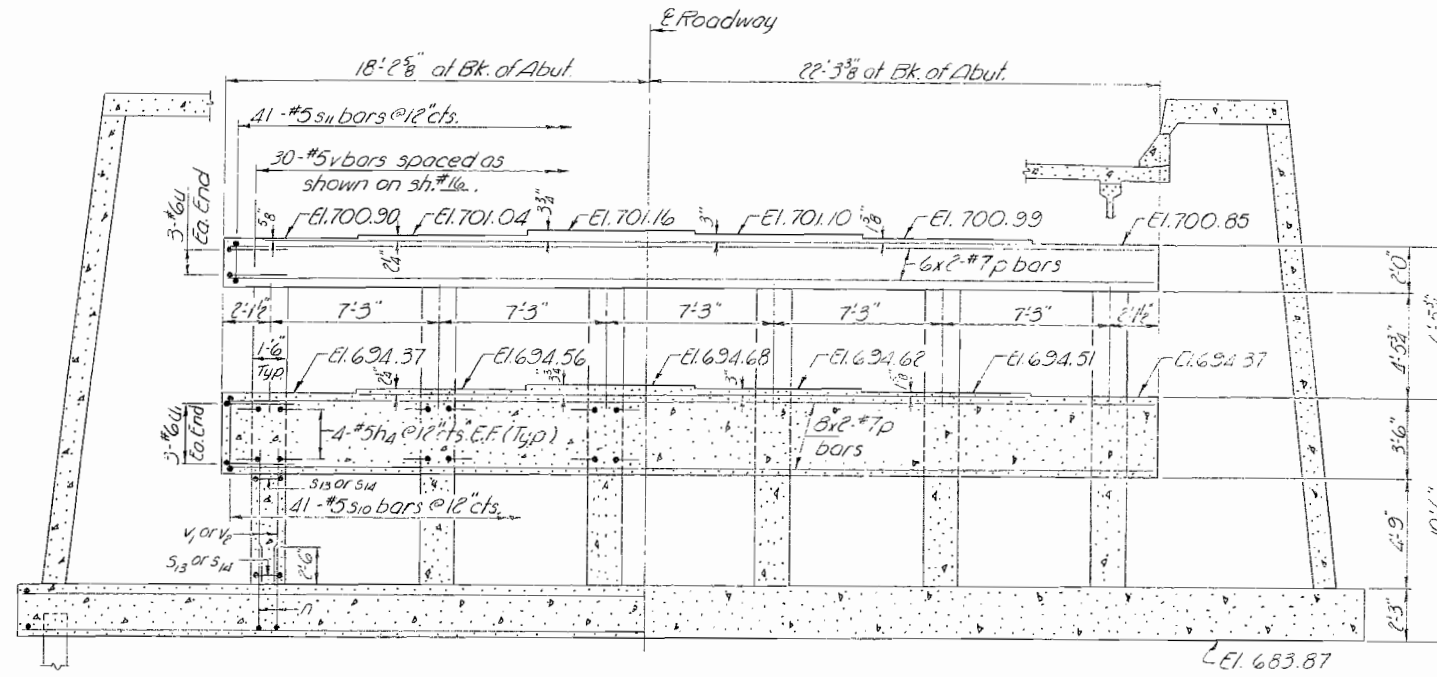 ℄ Roadway
18'-2⅝" at Bk. of Abut.
22'-3⅜" at Bk. of Abut.
41-#5 s11 bars @ 12" cts.
30-#5 v bars spaced as
shown on sh. #16.
3-#6u
Ea. End
⅝"
El. 700.90
El. 701.04
3¾"
El. 701.16
3"
El. 701.10
1⅜"
El. 700.99
El. 700.85
2¼"
6x2-#7p bars
2'-0"
2'-1½"
7'-3"
7'-3"
7'-3"
7'-3"
7'-3"
2'-1½"
4'-5¾"
1'-6"
Typ
El. 694.37
2¼"
El. 694.56
3¾"
El. 694.68
3"
El. 694.62
1⅛"
El. 694.51
El. 694.37
3-#6u
Ea. End
4-#5h4 @ 12" cts. E.F. (Typ)
8x2-#7p
bars
3'-6"
s13 or s14
41-#5 s10 bars @ 12" cts.
v1 or v2
s13 or s14
2'-6"
4'-9"
n
2'-3"
El. 683.87